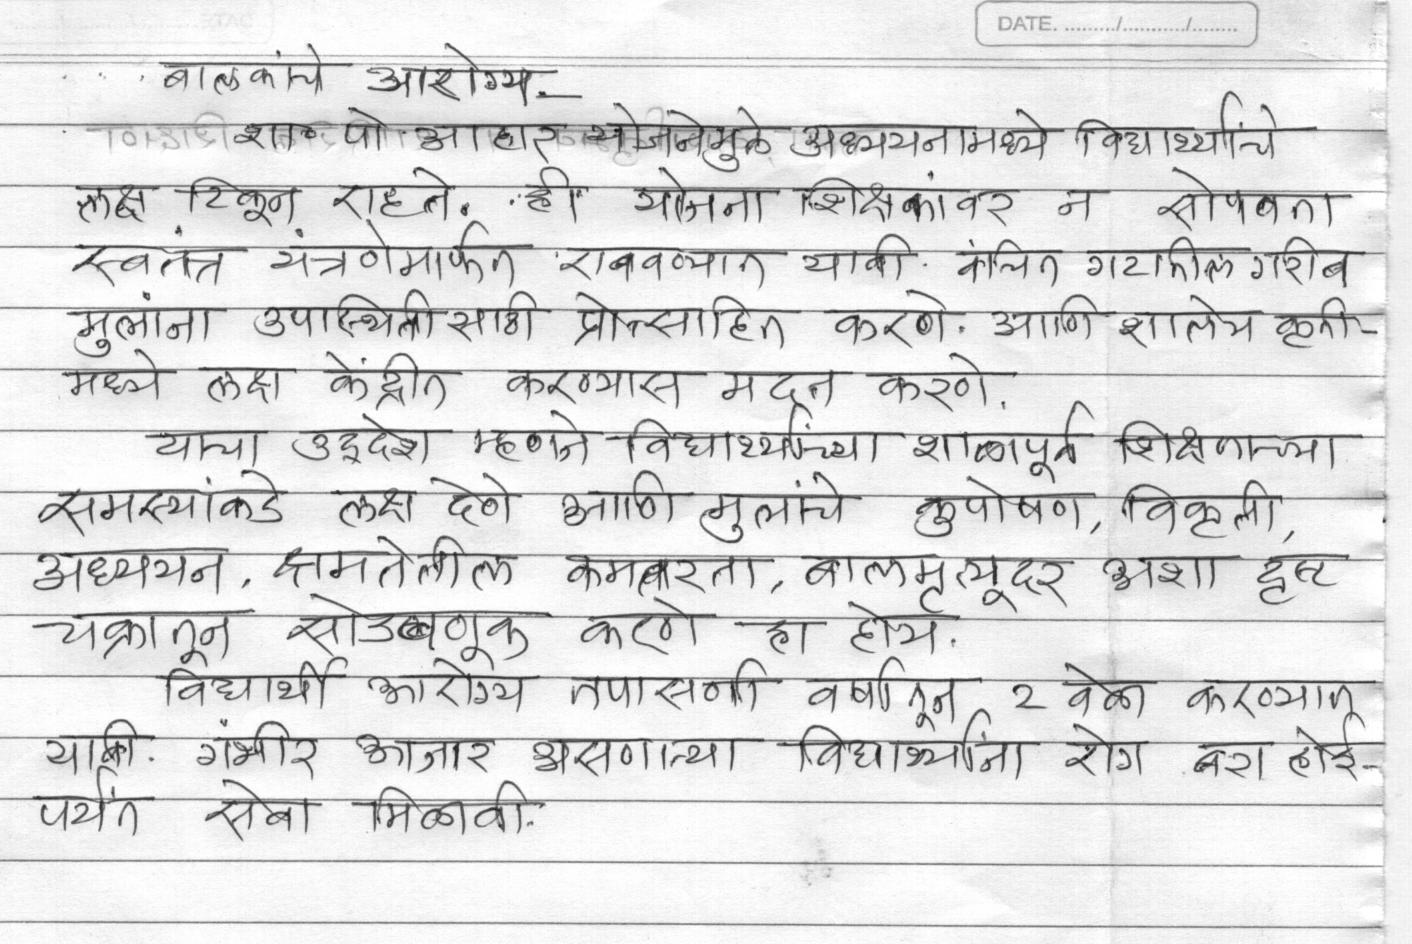 DATE. ........./.........../........
बालकांचे आरोग्य.
शा. पो आहार योजनेमुळे अध्ययनामध्ये विद्यार्थ्यांचे
लक्ष टिकून राहते. ही योजना शिक्षकांवर न सोपवता
स्वतंत्र यंत्रणेमार्फत राबवण्यात यावी. वंचित गटातील गरीब
मुलांना उपस्थितीसाठी प्रोत्साहित करणे. आणि शालेय कृती-
मध्ये लक्ष केंद्रीत करण्यास मदत करणे.
याचा उद्देश म्हणजे विद्यार्थ्यांच्या शाळापूर्व शिक्षणाच्या
समस्यांकडे लक्ष देणे आणि मुलांचे कुपोषण, विकृती,
अध्ययन, क्षमतेतील कमतरता, बालमृत्यूदर अशा दृष्ट
चक्रातून सोडवणूक करणे हा होय.
विद्यार्थी आरोग्य तपासणी वर्षातून 2 वेळा करण्यात
यावी. गंभीर आजार असणाऱ्या विद्यार्थ्यांना रोग बरा होई-
पर्यंत सेवा मिळावी.